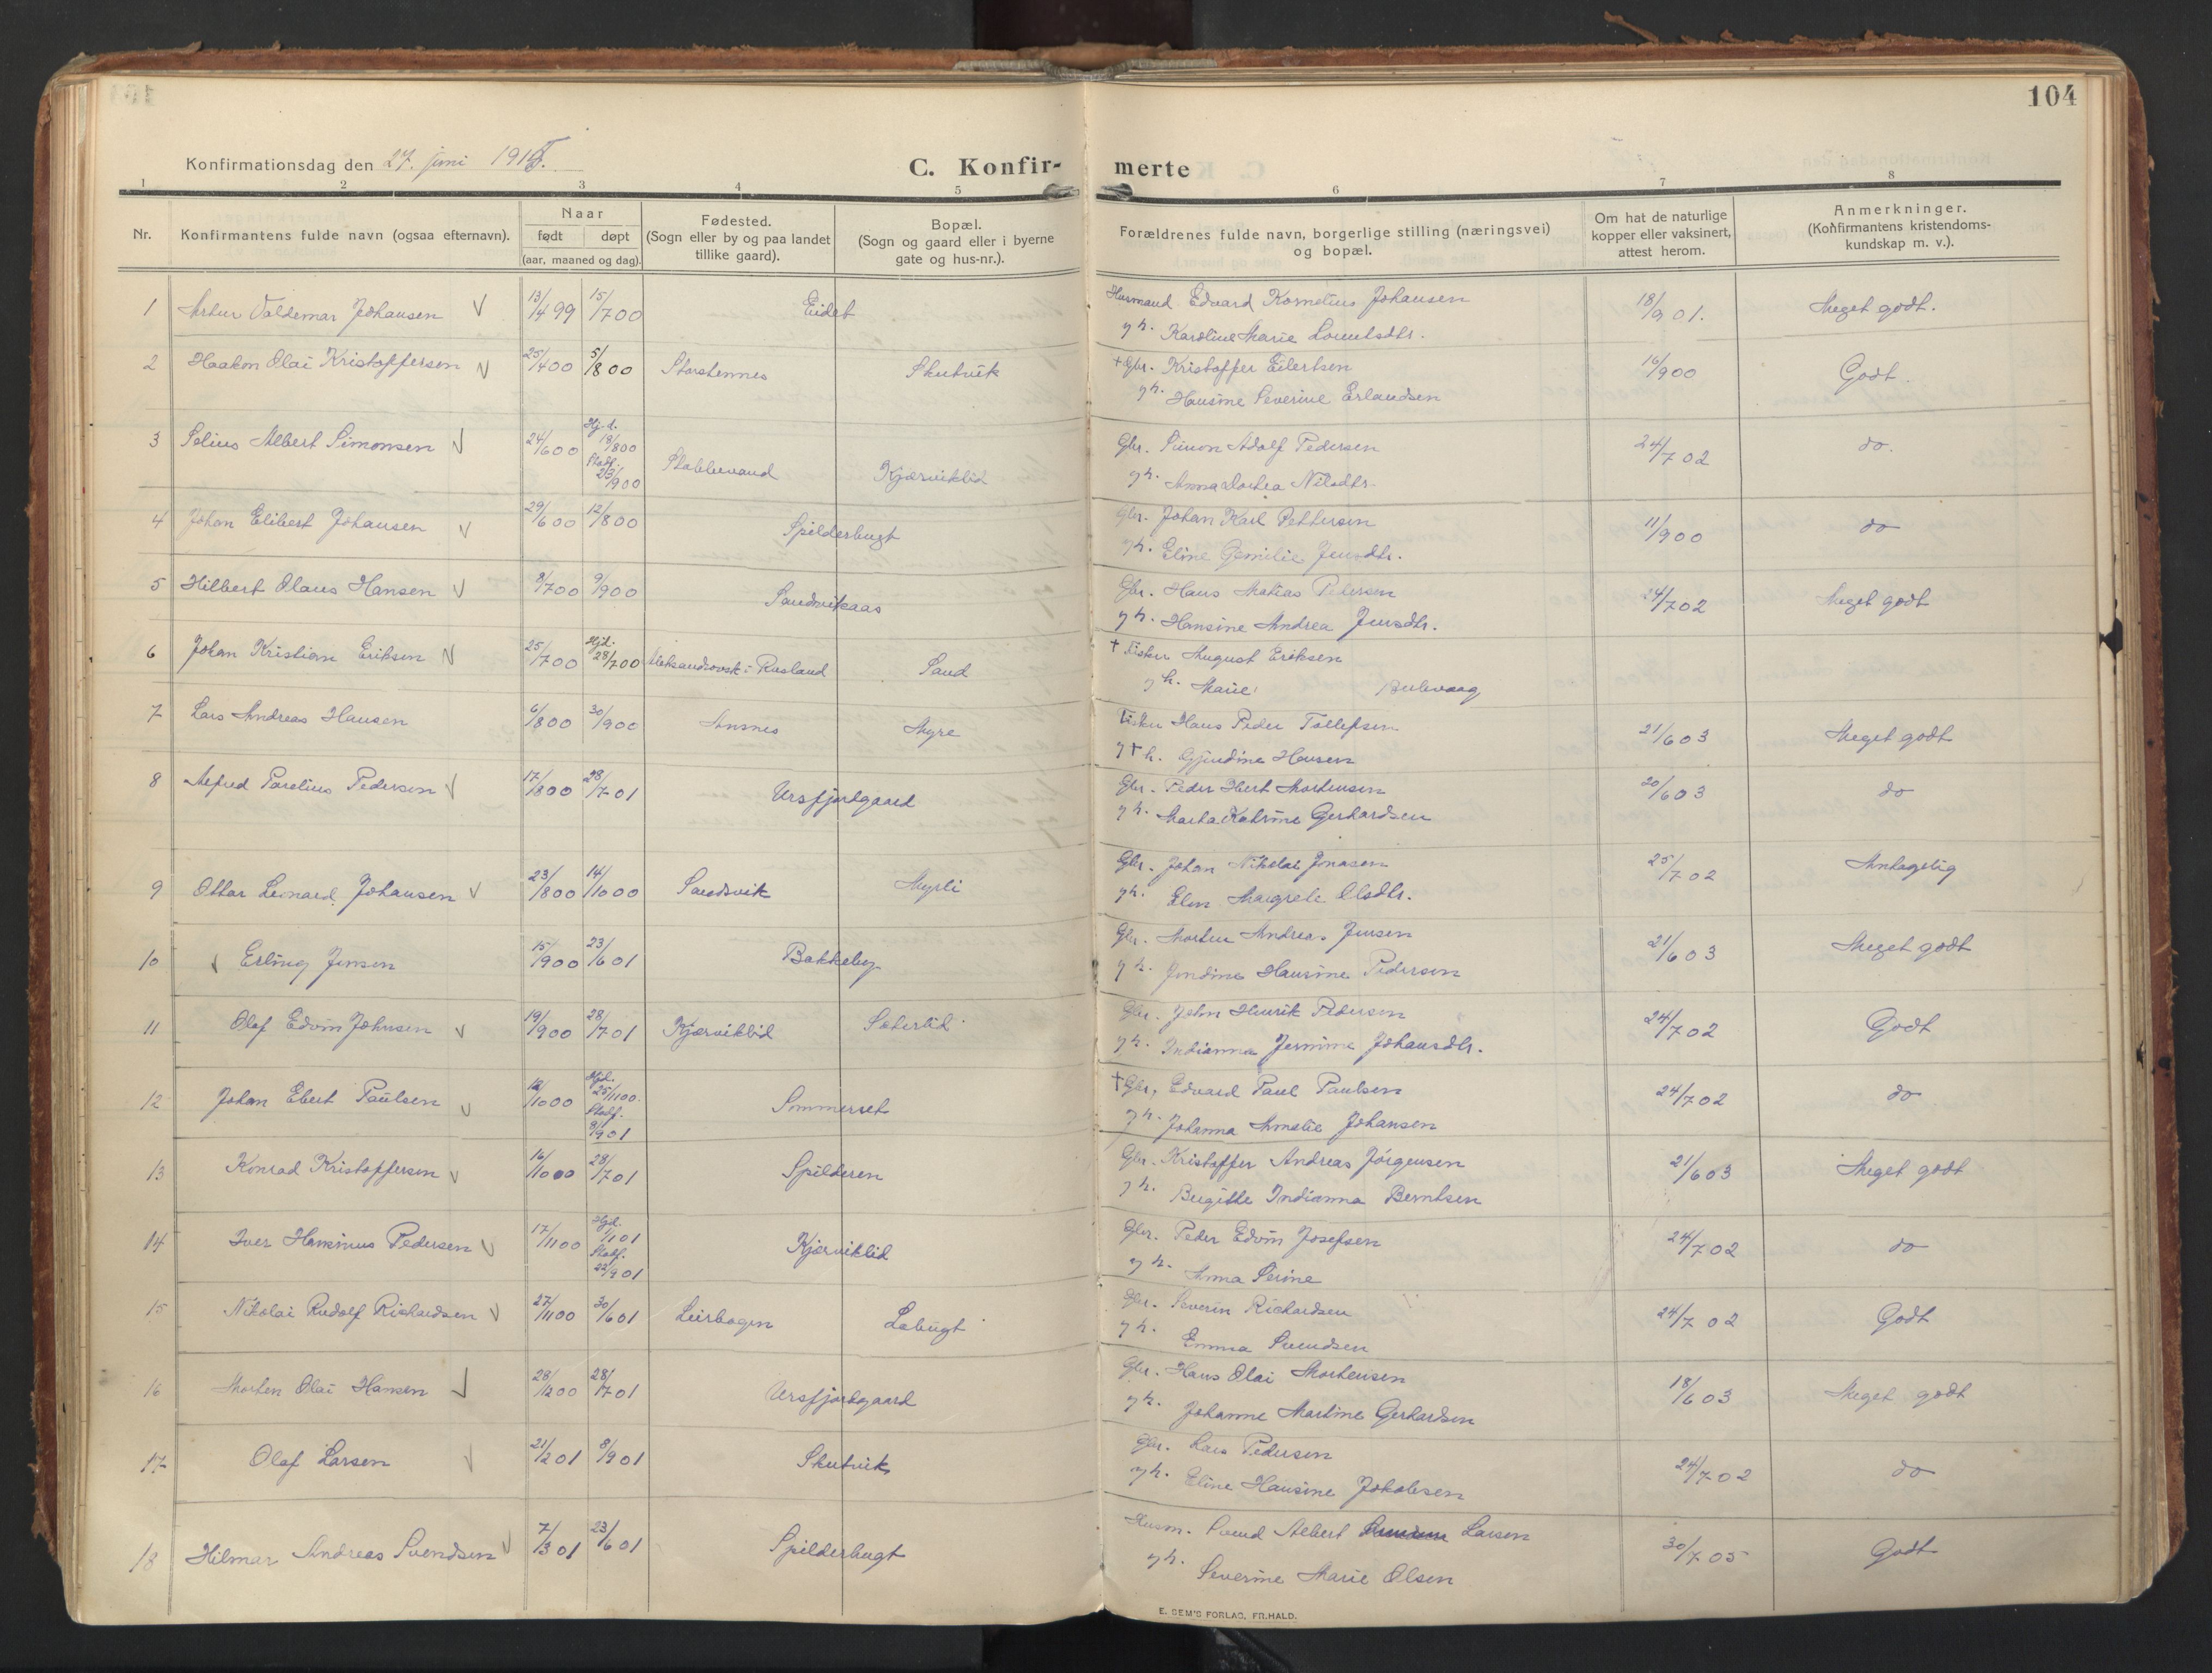 104
Konfirmationsdag den 27. juni 1915.
C. Konfir-
merte
1 2 3 4 5 6 7 8
Nr.
Konfirmantens fulde navn (ogsaa efternavn).
Naar
født døpt
(aar, maaned og dag).
Fødested.
(Sogn eller by og paa landet
tillike gaard).
Bopæl.
(Sogn og gaard eller i byerne
gate og hus-nr.).
Forældrenes fulde navn, borgerlige stilling (næringsvei)
og bopæl.
Om hat de naturlige
kopper eller vaksinert,
attest herom.
Anmerkninger.
(Konfirmantens kristendoms-
kundskap m. v.).
1 Artur Valdemar Johansen 13/4 99 15/7 00 Eidet Husmand Edvard Kornelius Johansen 18/9 01. Meget godt.
g h. Karoline Marie
2 Haakon Olai Kristoffersen 25/4 00 5/8 00 Storstennes Skutvik + Gbr. Kristoffer Eilertsen 16/9 00 Godt.
g h. Hansine Severine Erlandsen
3 Selius Albert Simonsen 24/6 00 Hj. d. 18/8 00 Stadf. 23/9 00 Stablevand Kjærviklid Gbr. Simon Adolf Pedersen 24/7 02 do.
g h. Anna Dortea Nilsdtr.
4 Johan Elibert Johansen 29/6 00 12/8 00 Spilderbugt Gbr. Johan Karl Pettersen 11/9 00 do
g h. Eline Jensdtr.
5 Hilbert Olaus Hansen 8/7 00 9/9 00 Sandvikaas Gbr. Hans Matias Pedersen 24/7 02 Meget godt
g h. Hansine Andrea Jensdtr.
6 Johan Kristian Eriksen 25/7 00 Hjd. 28/7 00 Aleksandrovsk i Rusland Sand + Fisker August Eriksen
g h. Marie
7 Lars Andreas Hansen 6/8 00 30/9 00 Ansnes Myre Fisker Hans Peder Tollefsen 21/6 03 Meget godt
g + h. Gjendine Hansen
8 Alfred Parelius Pedersen 17/8 00 28/7 01 Ursfjordgaard Gbr. Peder Ebert Mortensen 20/6 03 do
g h. Marta Katrine Gerhardsen
9 Ottar Leonard Johansen 23/8 00 14/10 00 Sandsvik Myrli Gbr. Johan Nikolai Jonasen 25/7 02 Antagelig
g h. Elen Margrete Olsdtr.
10 Erling Jensen 15/9 00 23/6 01 Bakkeby Gbr. Morten Andreas Jensen 21/6 03 Meget godt
g h. Jendine Hansine Pedersen
11 Olaf Edvin Johnsen 19/9 00 28/7 01 Kjærviklid Sæterlid Gbr. John Henrik Pedersen 24/7 02 Godt
g h. Indianna Jermine Johansdtr.
12 Johan Ebert Paulsen /10 00 Hjd. 25/11 00. Stadf. 8/9 01 Sommerset + Gbr. Edvard Paul Paulsen 24/7 02 do
g h. Johanna Amalie Johansen
13 Konrad Kristoffersen 16/10 00 28/7 01 Spilderen Gbr. Kristoffer Andreas Jörgensen 21/6 03 Meget godt
g h. Birgitte Indianna Berntsen
14 Iver Hansinus Pedersen 17/11 00 Hjd. 1/1 01 Stadf. 22/9 01 Kjærviklid Gbr. Peder Edvin Josefsen 24/7 02 do
g h. Anna Serine
15 Nikolai Rudolf Richardsen 27/11 00 30/6 01 Leirbogen Labugt Gbr. Severin Richardsen 24/7 02 Godt
g h. Emma Svendsen
16 Morten Olai Hansen 28/12 00 28/7 01 Ursfjordgaard Gbr. Hans Olai Mortensen 18/6 03 Meget godt
g h. Johanne Martine Gerhardsen
17 Olaf Larsen 21/2 01 8/9 01 Skutvik Gbr. Lars Pedersen 24/7 02 do
g h. Eline Hansine Jakobsen
18 Hilmar Andreas Svendsen 7/3 01 23/6 01 Spilderbugt Husm. Svend Albert Larsen 30/7 05 Godt
g h. Severine Marie Olsen
E. SEM'S FORLAG, FR.HALD.